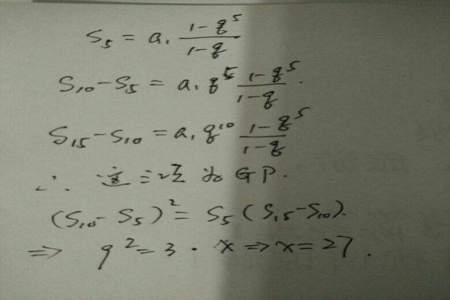 S₅ = a₁ (1-q⁵)/(1-q)
S₁₀-S₅ = a₁q⁵ (1-q⁵)/(1-q).
S₁₅-S₁₀ = a₁q¹⁰ (1-q⁵)/(1-q)
∴ 这三项为GP.
(S₁₀-S₅)² = S₅(S₁₅-S₁₀).
⇒ 9² = 3·x ⇒ x = 27.